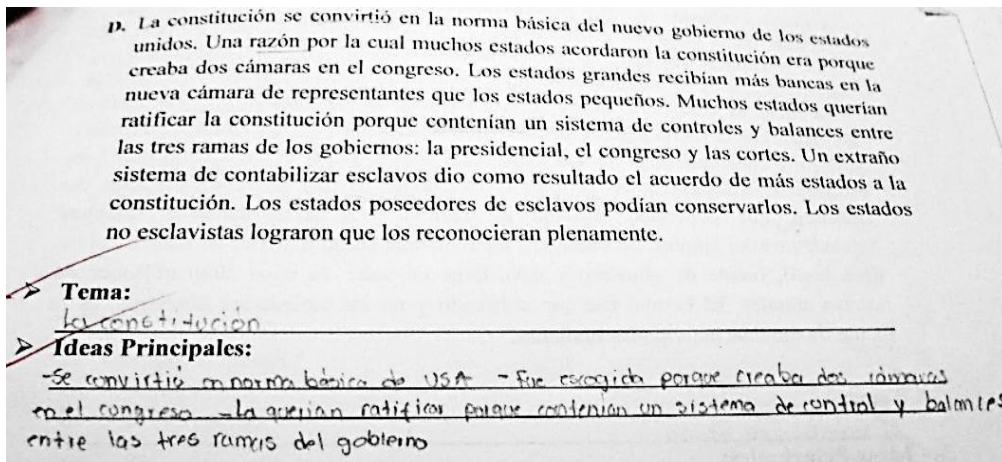 D. La constitución se convirtió en la norma básica del nuevo gobierno de los estados
unidos. Una razón por la cual muchos estados acordaron la constitución era porque
creaba dos cámaras en el congreso. Los estados grandes recibían más bancas en la
nueva cámara de representantes que los estados pequeños. Muchos estados querían
ratificar la constitución porque contenían un sistema de controles y balances entre
las tres ramas de los gobiernos: la presidencial, el congreso y las cortes. Un extraño
sistema de contabilizar esclavos dio como resultado el acuerdo de más estados a la
constitución. Los estados poseedores de esclavos podían conservarlos. Los estados
no esclavistas lograron que los reconocieran plenamente.
➤ Tema:
La constitución
➤ Ideas Principales:
-Se convirtió en norma básica de USA - Fue escogida porque creaba dos cámaras
en el congreso -la querian ratificar porque contenian un sistema de control y balances
entre las tres ramas del gobierno